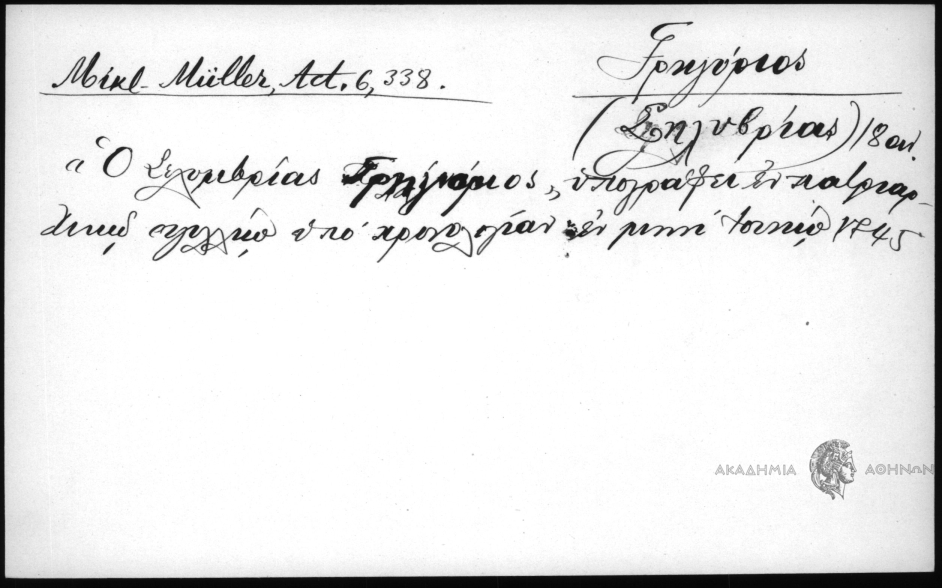 Mikl-Müller, Act. 6, 338.
Γρηγόριος
(Σηλυβρίας) 18 αι.
"Ὁ Σηλυμβρίας Γρηγόριος„ ὑπογράφει ἐν πατριαρ-
χικῷ σιγιλλίῳ ὑπὸ χρονολογίαν ἐν μηνὶ Ἰουνίῳ 1745
ΑΚΑΔΗΜΙΑ ΑΘΗΝΩΝ